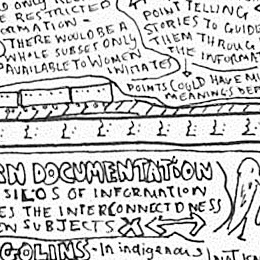 D ONLY
RE RESTRICTED
ORMATION -
THERE WOULD BE A
WHOLE SUBSET ONLY
AVAILABLE TO WOMEN
INITIATES
POINT TELLING
STORIES TO GUIDE
THEM THROUGH
THE INFORMAT
POINTS COULD HAVE MU
MEANINGS DEP
RN DOCUMENTATION
SILOS OF INFORMATION
ES THE INTERCONNECTDNESS
EN SUBJECTS
GOLINS - In indigenous